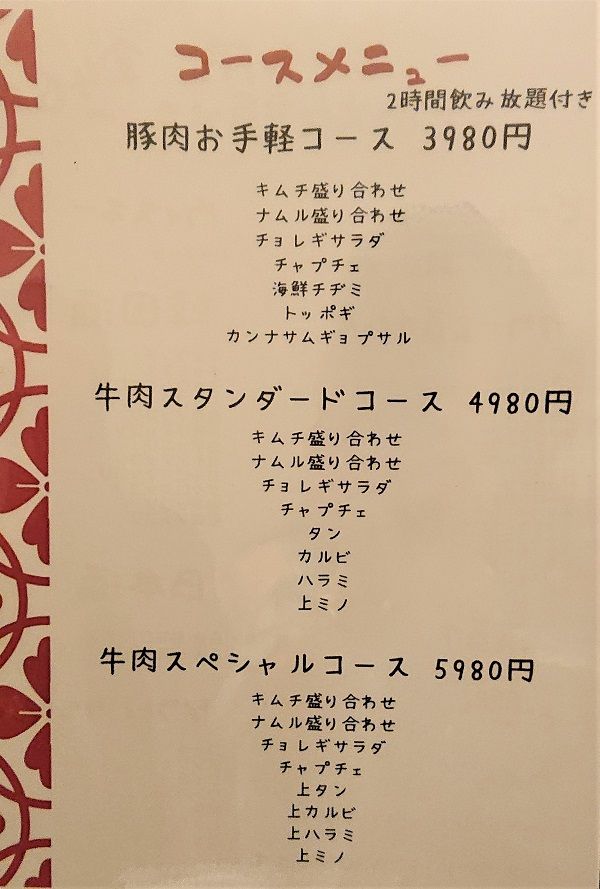 コースメニュー
2時間飲み放題付き
豚肉お手軽コース 3980円
キムチ盛り合わせ
ナムル盛り合わせ
チョレギサラダ
チャプチェ
海鮮チヂミ
トッポギ
カンナサムギョプサル
牛肉スタンダードコース 4980円
キムチ盛り合わせ
ナムル盛り合わせ
チョレギサラダ
チャプチェ
タン
カルビ
ハラミ
上ミノ
牛肉スペシャルコース 5980円
キムチ盛り合わせ
ナムル盛り合わせ
チョレギサラダ
チャプチェ
上タン
上カルビ
上ハラミ
上ミノ